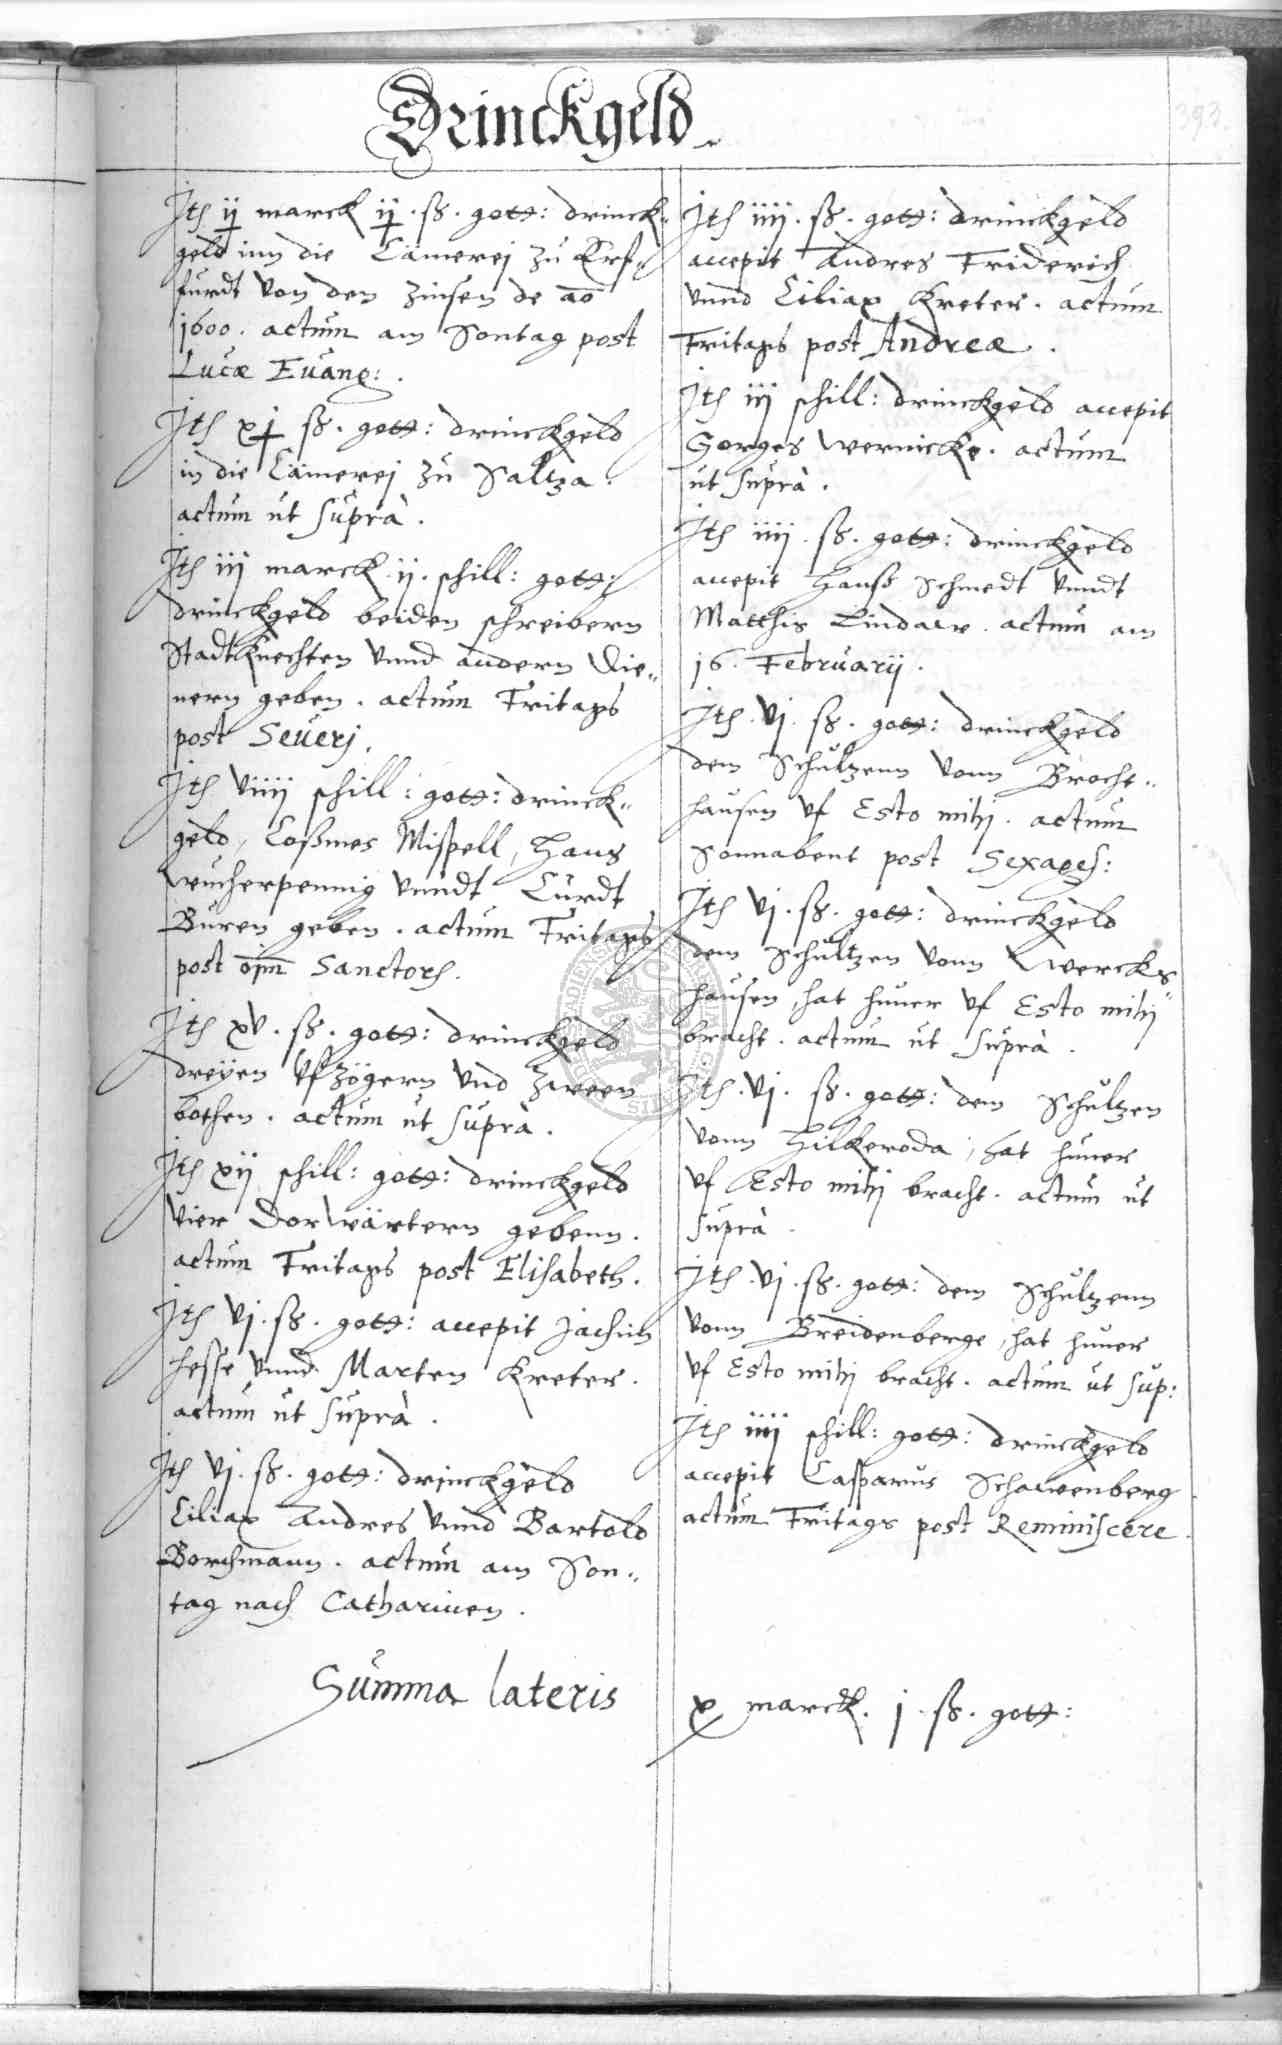 393.
Drinckgeld.
Ith ij marck ij. ß. gott: drinck„
geld inn die Cämerej zu Erf„
furdt von den zinsen de ao
1600. actum am Sontag post
Lucæ Euang:.
Ith xj ß. gott: drinckgeld
in die Cämerej zu Saltza.
actum ut suprà.
Ith iij marck ij. schill: gott:
drinckgeld beiden schreibern
Stadtknechten vnnd andern Die„
nern geben. actum Fritags
post Seuerj.
Ith viiij schill: gott: drinck„
geld, Coßmes Mispell, Hans
Wucherpennig vnndt Curdt
Buren geben. actum Fritags
post oim Sanctorh.
Ith xv. ß. gott: drinckgeld
dreÿen vfzögern vnd zween
bothen. actum ut suprà.
Ith xij schill: gott: drinckgeld
vier Dorwärtern gebenn.
actum Fritags post Elisabeth.
Ith vj. ß. gott: accepit Jachim
Hesse vnnd Marten Kreter.
actum ut suprà.
Ith vj. ß. gott: drinckgeld
Ciliax Andres vnnd Bartold
Borchmann. actum am Son„
tag nach Catharinen.
Ith iiij. ß. gott: drinckgeld
accepit Andres Friderich
vnnd Ciliax Kreter. actum
Fritags post Andreæ.
Ith iij schill: drinckgeld accepit
Gorges Wernicke. actum
ut suprà.
Ith iiij. ß. gott: drinckgeld
accepit Hanß Schmedt vnndt
Matthis Lindaw. actum am
16. Februarij.
Ith. vj. ß. gott: drinckgeld
dem Schultzenn vonn Brocht„
hausen vf Esto mihi. actum
Sonnabent post Sexages:
Ith vj. ß. gott: drinckgeld
dem Schultzen vonn Wercks„
hausen, hat huner vf Esto mihi
bracht. actum ut suprà.
Ith. vj. ß. gott: dem Schultzen
vonn Hilkeroda, hat huner
vf Esto mihi bracht. actum ut
suprà.
Ith. vj. ß. gott: dem Schultzenn
vonn Breidenberge, hat huner
vf Esto mihi bracht. actum ut sup:
Ith iiij schill: gott: drinckgeld
accepit Casparus Schawenberg
actum Fritags post Reminiscere.
Summa lateris x marck. j. ß. gott: